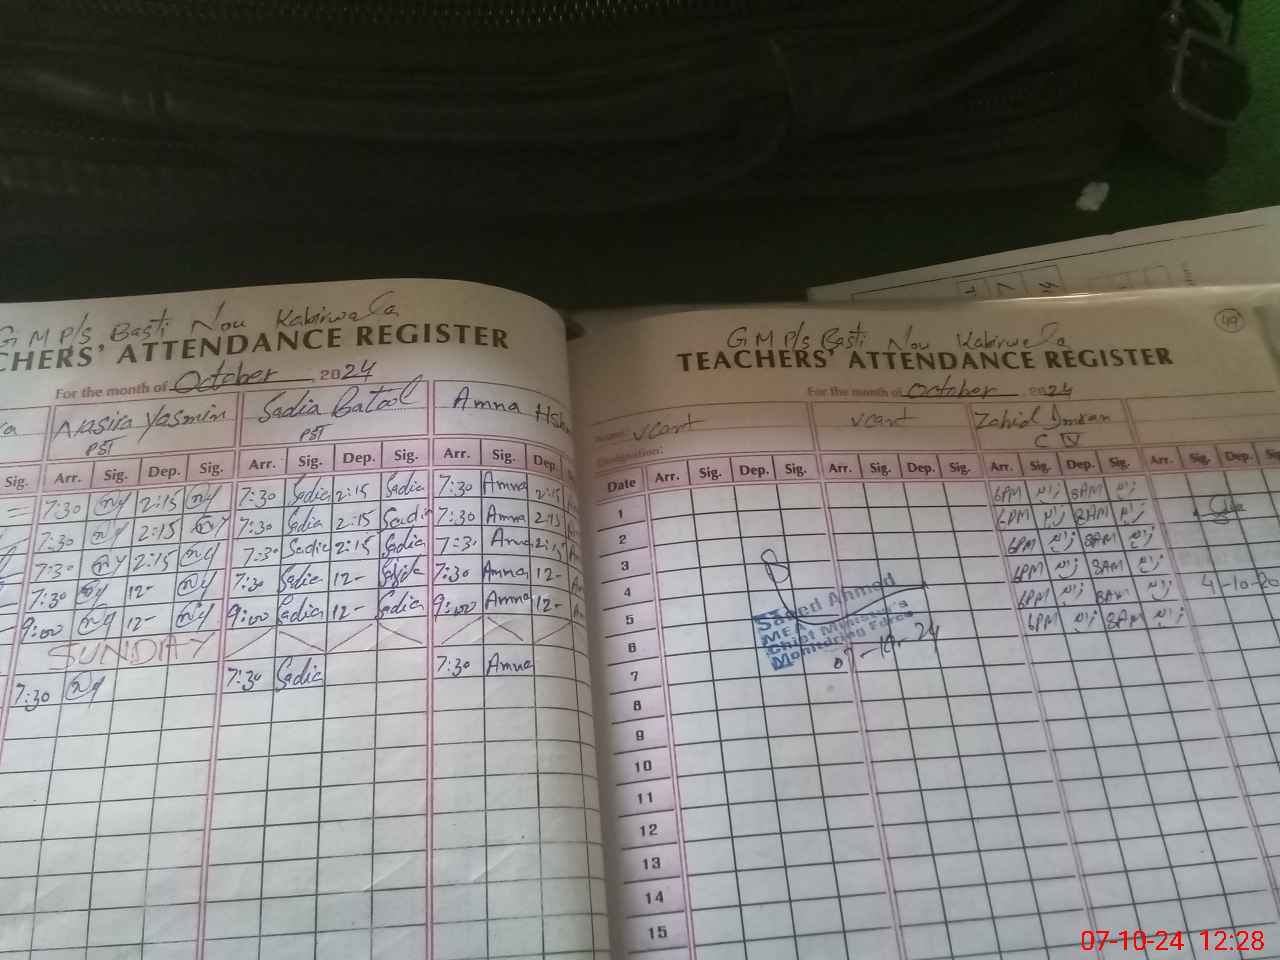 G M P/s Basti Nou Kabirwala
CHERS' ATTENDANCE REGISTER
For the month of October, 2024
Nasira Yasmin Sadia Batool Amna
PST PST
Sig. Arr. Sig. Dep. Sig. Arr. Sig. Dep. Sig. Arr. Sig. Dep.
7:30 2:15 7:30 Sadia 2:15 Sadia 7:30 Amna 2:15
7:30 2:15 7:30 Sadia 2:15 Sadia 7:30 Amna 2:15
7:30 2:15 7:30 Sadia 2:15 Sadia 7:30 Amna 2:15
7:30 12- 7:30 Sadia 12- Sadia 7:30 Amna 12-
9:00 12- 9:00 Sadia 12- Sadia 9:00 Amna 12-
SUNDAY
7:30 7:30 Sadia 7:30 Amna
49
G M P/s Basti Nou Kabirwala
TEACHERS' ATTENDANCE REGISTER
For the month of October 2024
Name: vcant vcant Zahid Imran
Designation: C IV
Date Arr. Sig. Dep. Sig. Arr. Sig. Dep. Sig. Arr. Sig. Dep. Sig. Arr. Sig. Dep.
1 6PM 8AM
2 6PM 8AM
3 6PM 8AM
4 6PM 8AM 4-10-20
5 6PM 8AM
6 6PM 8AM
7
8
9
10
11
12
13
14
15
Saeed Ahmad
MEA
Chief Minister's
Monitoring Force
07-10-24 12:28